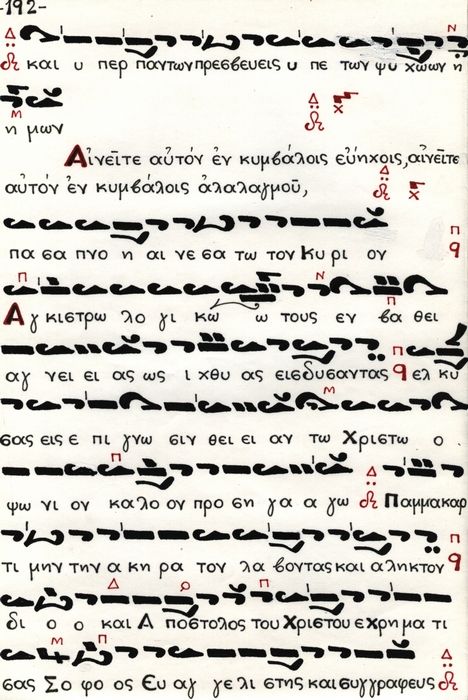 -192-
και υ περ παντων πρεσβευεις υ πε των ψυ χωων η
η μων
Αἰνεῖτε αὐτόν ἐν κυμβάλοις εὐήχοις, αἰνεῖτε
αὐτόν ἐν κυμβάλοις ἀλαλαγμοῦ,
πα σα πνο η αι νε σα τω τον Κυ ρι ον
Αγ κιστρω λο γι κω ω τους εν βα θει
αγ νει ει ας ως ι χθυ ας εισδυσαντας ελ κυ
σας εις ε πι γνω σιν θει ει αν τω Χριστω ο
ψω νι ον καλο ον προ ση γα α γω Παμμακαρ
τι μην την α κη ρα τον λα βοντας και αληκτον
δι ο ο και Α ποστολος του Χριστου ε χρη μα τι
σας Σο φο ος Ευ αγ γε λι στης και συγγραφευς